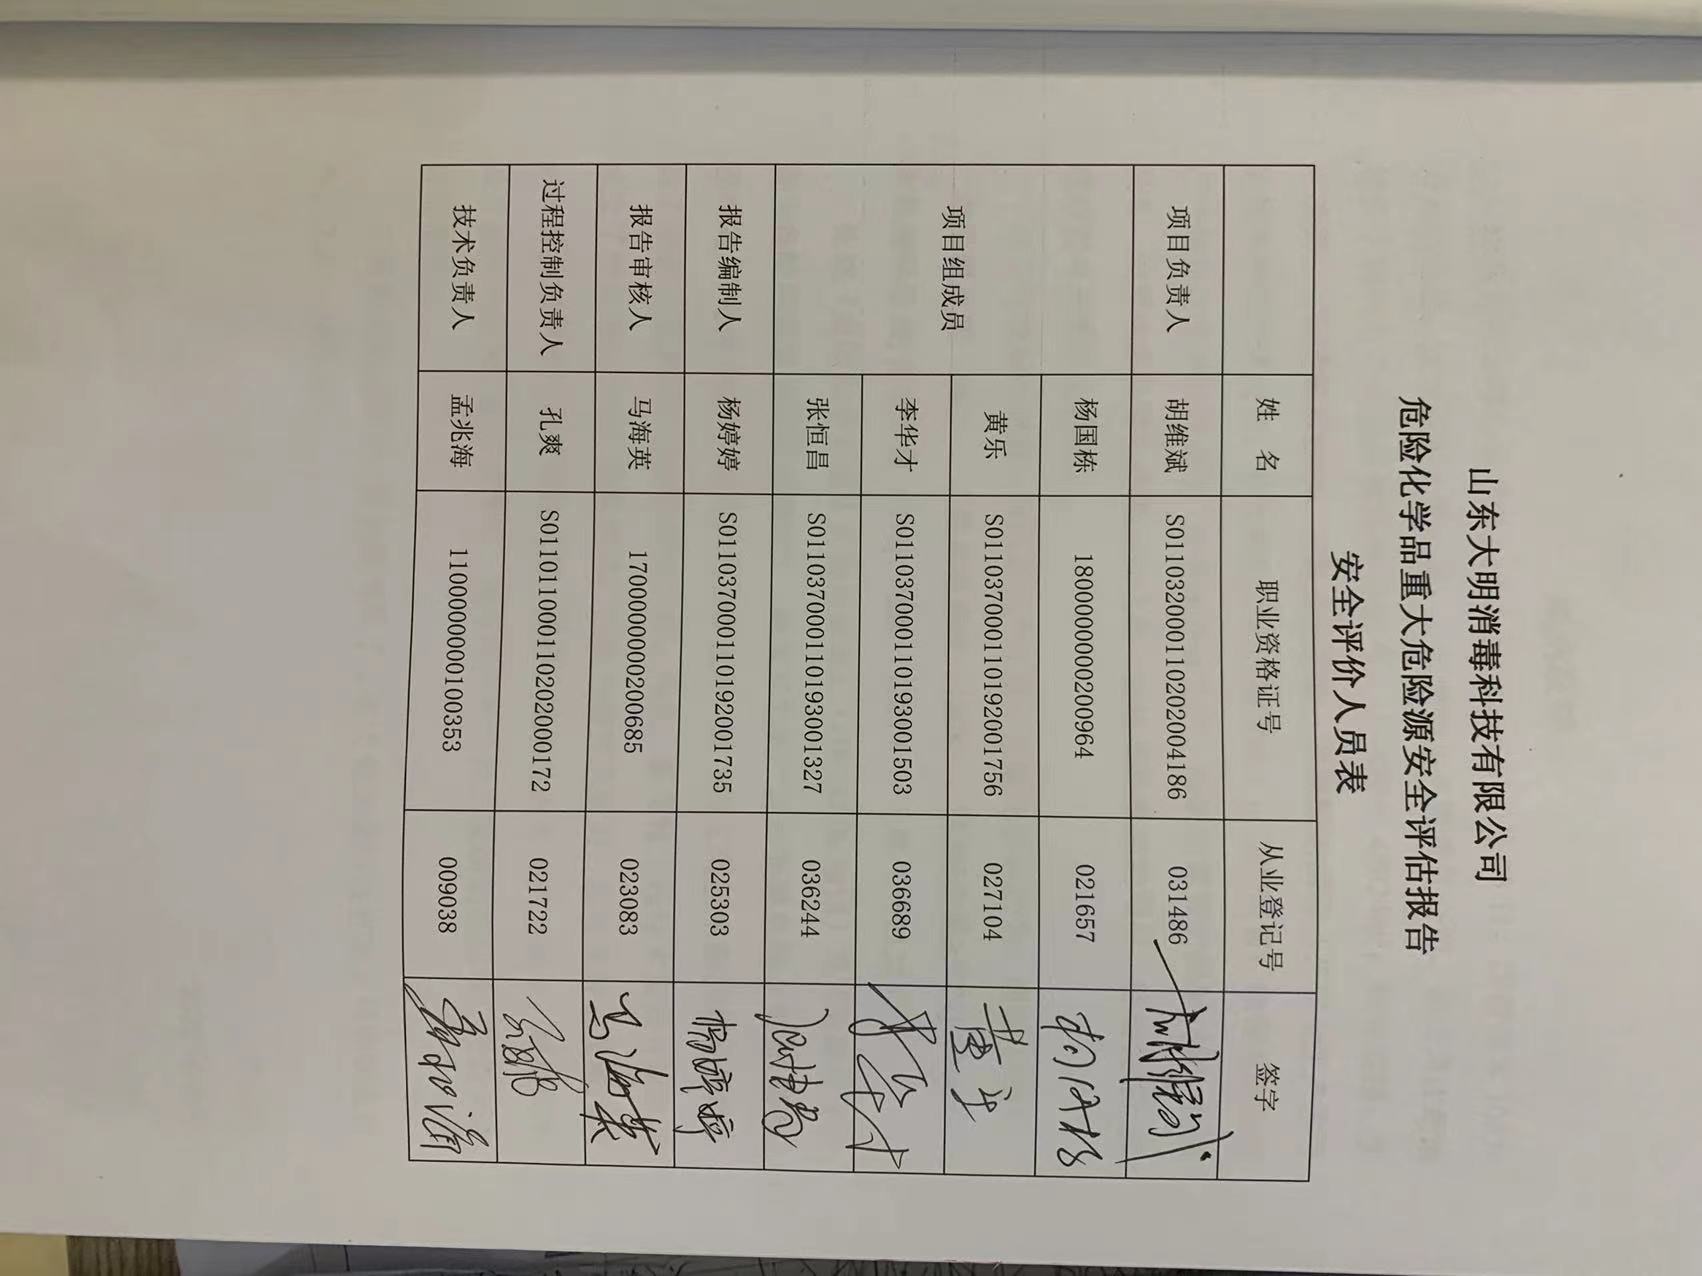 山东大明消毒科技有限公司
危险化学品重大危险源安全评估报告
安全评价人员表
姓 名 职业资格证号 从业登记号 签字
项目负责人 胡维斌 S011032000110202004186 031486 胡维斌
项目组成员 杨国栋 1800000000200964 021657 杨国栋
黄乐 S011037000110192001756 027104 黄乐
李华才 S011037000110193001503 036689 李华才
张恒昌 S011037000110193001327 036244 张恒昌
报告编制人 杨婷婷 S011037000110192001735 025303 杨婷婷
报告审核人 马海英 1700000000200685 023083 马海英
过程控制负责人 孔爽 S011011000110202000172 021722 孔爽
技术负责人 孟兆海 1100000000100353 009038 孟兆海